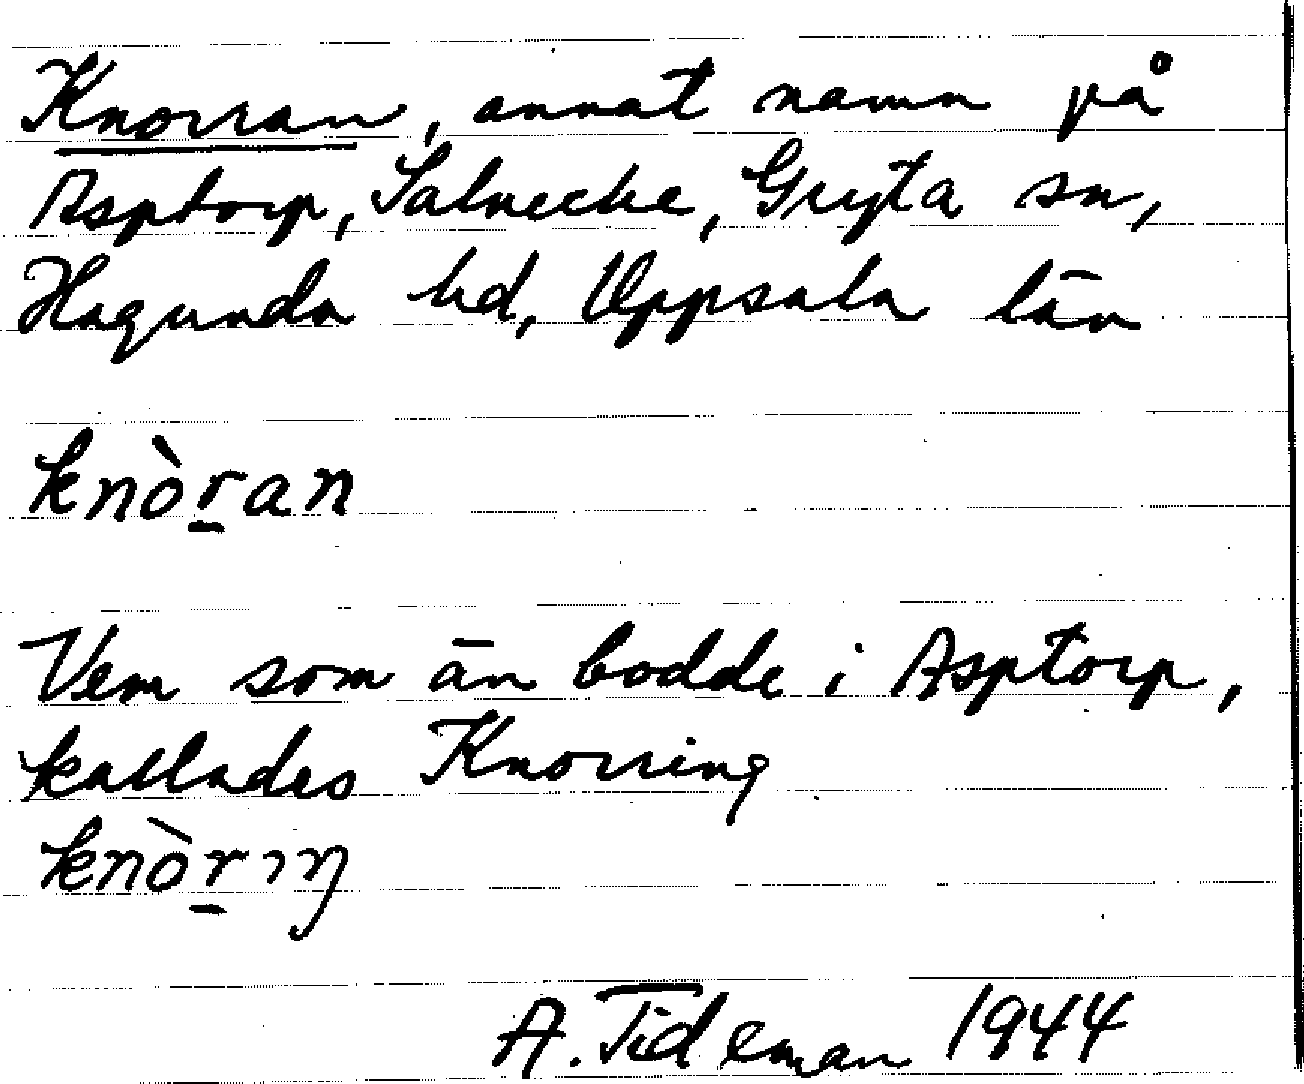 Knorran, annat namn på
Asptorp, Salnecke, Gryta sn,
Hagunda hd, Uppsala län
knòr̲an
Vem som än bodde i Asptorp,
kallades Knorring
knòr̲ıŋ
A. Tideman 1944